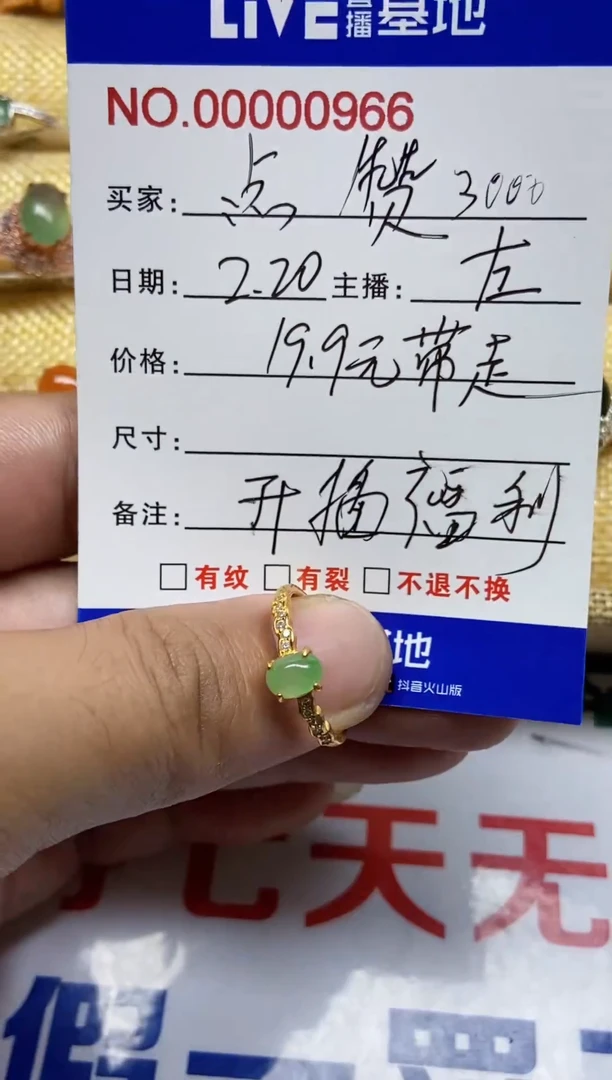 LIVE直播基地
NO.00000966
买家: 点赞3000
日期: 2.20 主播: 左
价格: 19.9元带走
尺寸:
备注: 开播福利
□有纹 □有裂 □不退不换
地
抖音火山版
七天无
假一